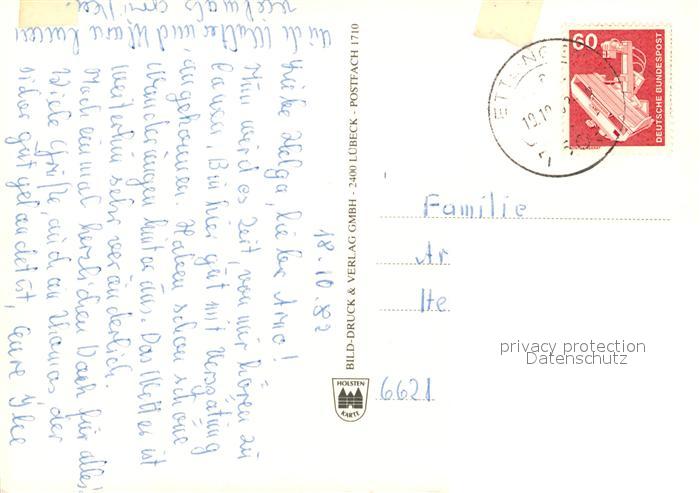 18.10.82
Liebe Helga, lieber Arno!
Nun wird es Zeit, von mir hören zu
lassen. Bin hier gut mit Verspätung
angekommen. Haben schon schöne
Wanderungen hinter uns. Das Wetter ist
weiterhin sehr veränderlich.
Noch einmal herzlichen Dank für alles!
Viele Grüße, auch an Thomas, der
sicher gut gelandet ist, Eure
auch Walter und
vielmals
BILD-DRUCK & VERLAG GMBH - 2400 LÜBECK - POSTFACH 1710
HOLSTEN
KARTE
60
DEUTSCHE BUNDESPOST
Familie
Ar
He
privacy protection
Datenschutz
6621